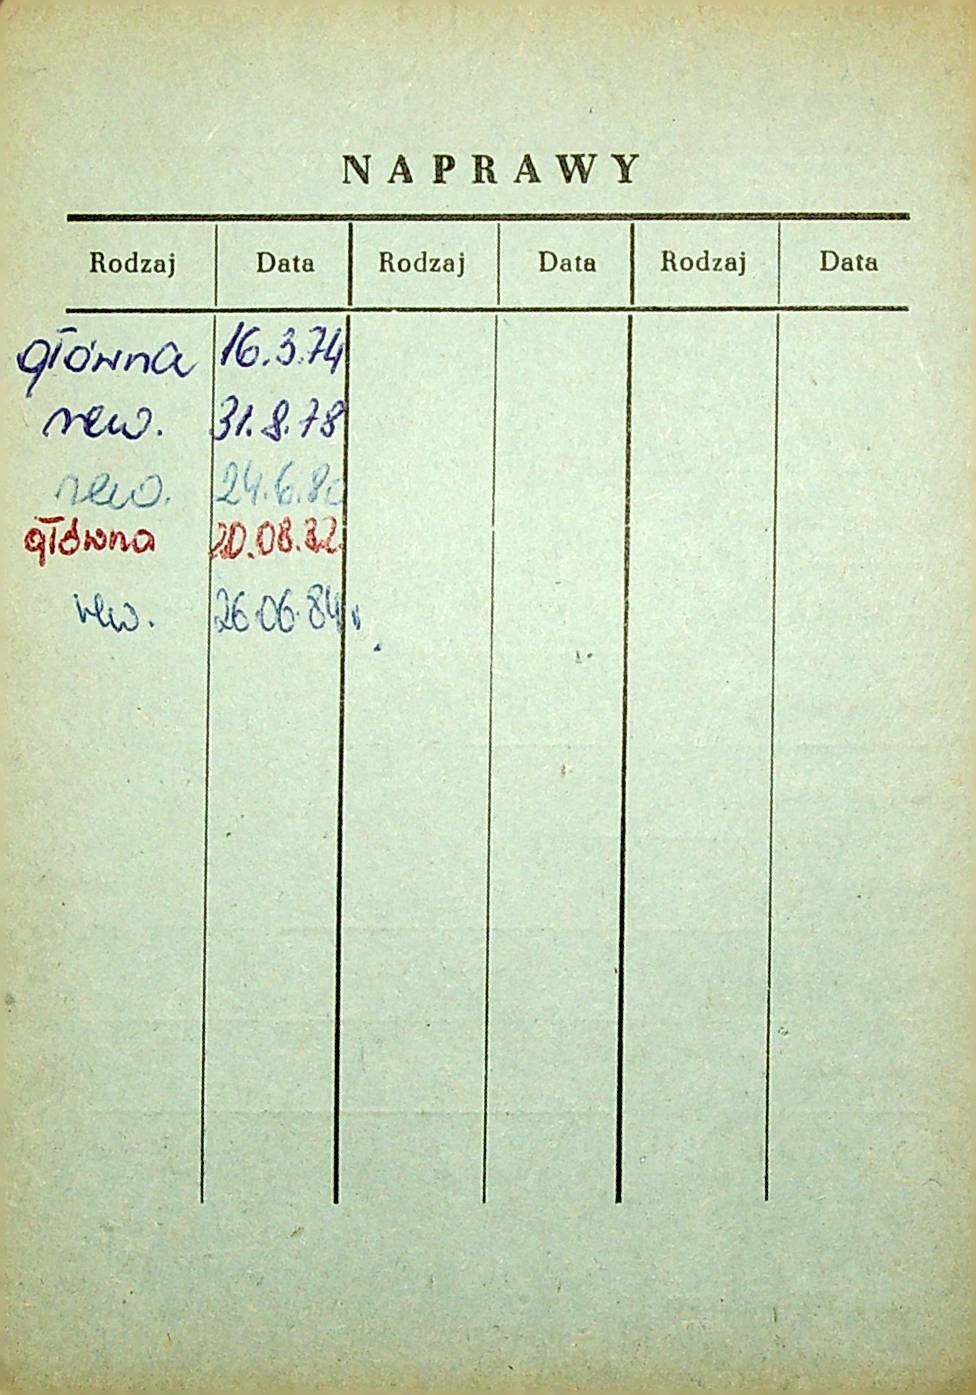 NAPRAWY
Rodzaj Data Rodzaj Data Rodzaj Data
główna 16.3.74
rew. 31.8.78
rew. 24.6.80
główna 20.08.82.
rew. 26.06.84r.